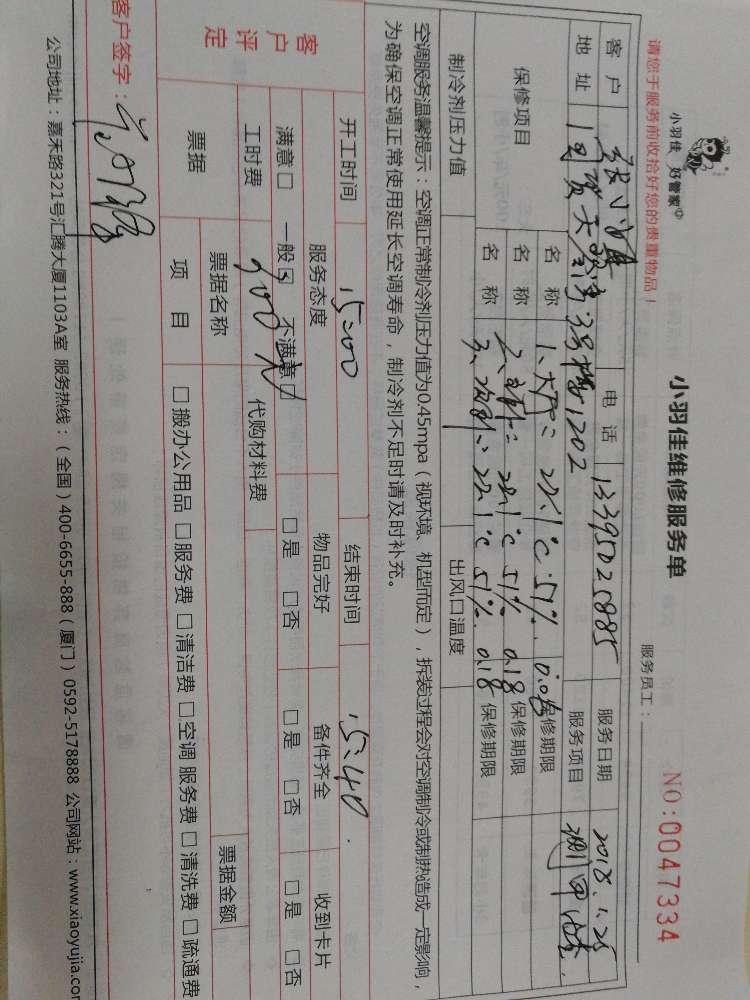 小羽佳 好管家
小羽佳维修服务单
NO:0047334
请您于服务前收拾好您的贵重物品！
服务员工：
客户 张小 电话 13395025885 服务日期 2018.1.25
地址 国贸天琴湾 号楼1202 服务项目 测甲醛
保修项目 名称 1、大厅: 22.1℃ 51% 保修期限
名称 2、主卧: 22.1℃ 51% 0.18 保修期限
名称 3、次卧: 22.1℃ 51% 0.18 保修期限
制冷剂压力值 出风口温度
空调服务温馨提示：空调正常制冷剂压力值为0.45mpa（视环境、机型而定），拆装过程会对空调制冷或制热造成一定影响，
为确保空调正常使用延长空调寿命，制冷剂不足时请及时补充。
开工时间 15:00 结束时间 15:40
客户评定 服务态度 物品完好 备件齐全 收到卡片
满意□ 一般☑ 不满意□ □是 □否 □是 □否 □是 □否
工时费 代购材料费
票据 票据名称 票据金额
项目 □搬办公用品 □服务费 □清洁费 □空调服务费 □清洗费 □疏通费
客户签字：
公司地址：嘉禾路321号汇腾大厦1103A室 服务热线：（全国）400-6655-888（厦门）0592-5178888 公司网站：www.xiaoyujia.com